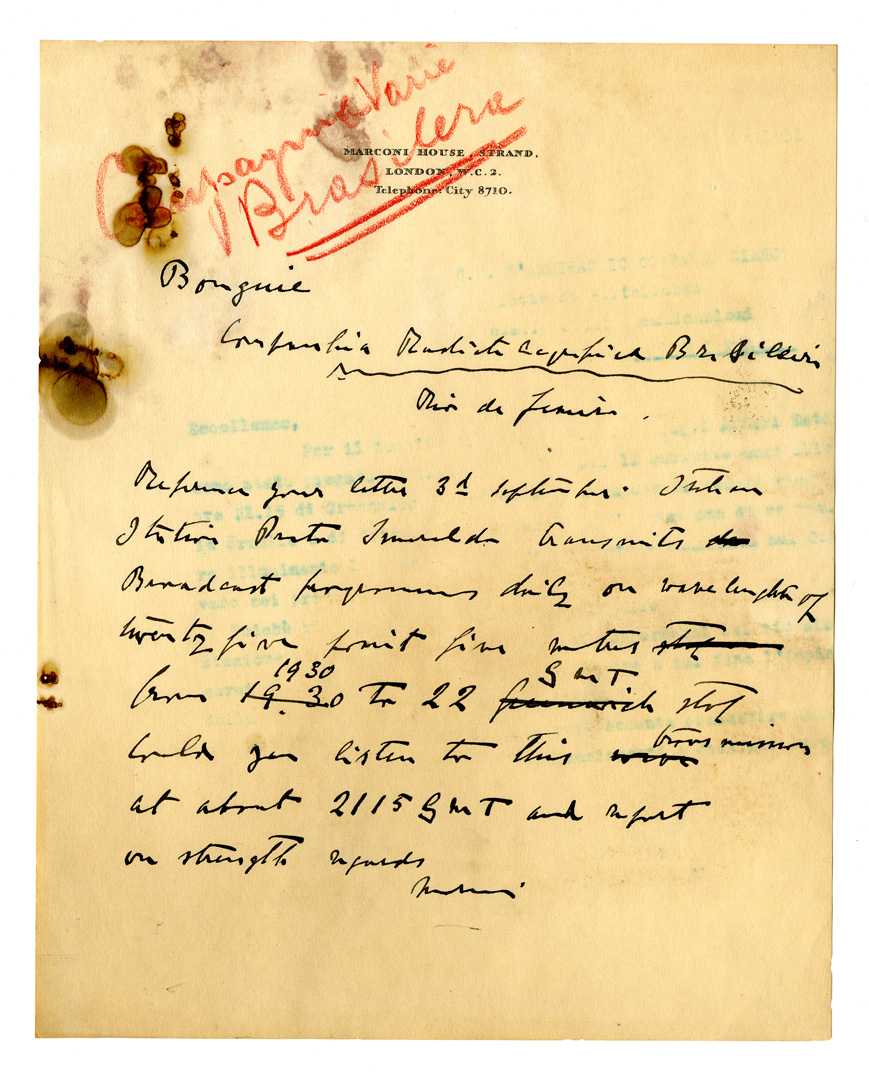 Compagnia Varie
Brasilera
MARCONI HOUSE, STRAND.
LONDON, W.C. 2.
Telephone: City 8710.
Companhia Radiotelegrafica Brasileira
Rio de Janeiro.
Eccellenza,
Per il
Reference your letter 3d september Italian
Station Prato Smeraldo transmits
Broadcast programmes daily on wavelenght of
twenty five point five metres stop
1930 GMT
from 19.30 to 22 Greenwich stop
Could you listen to this wave transmission
at about 2115 GMT and report
on strength regards
Marconi